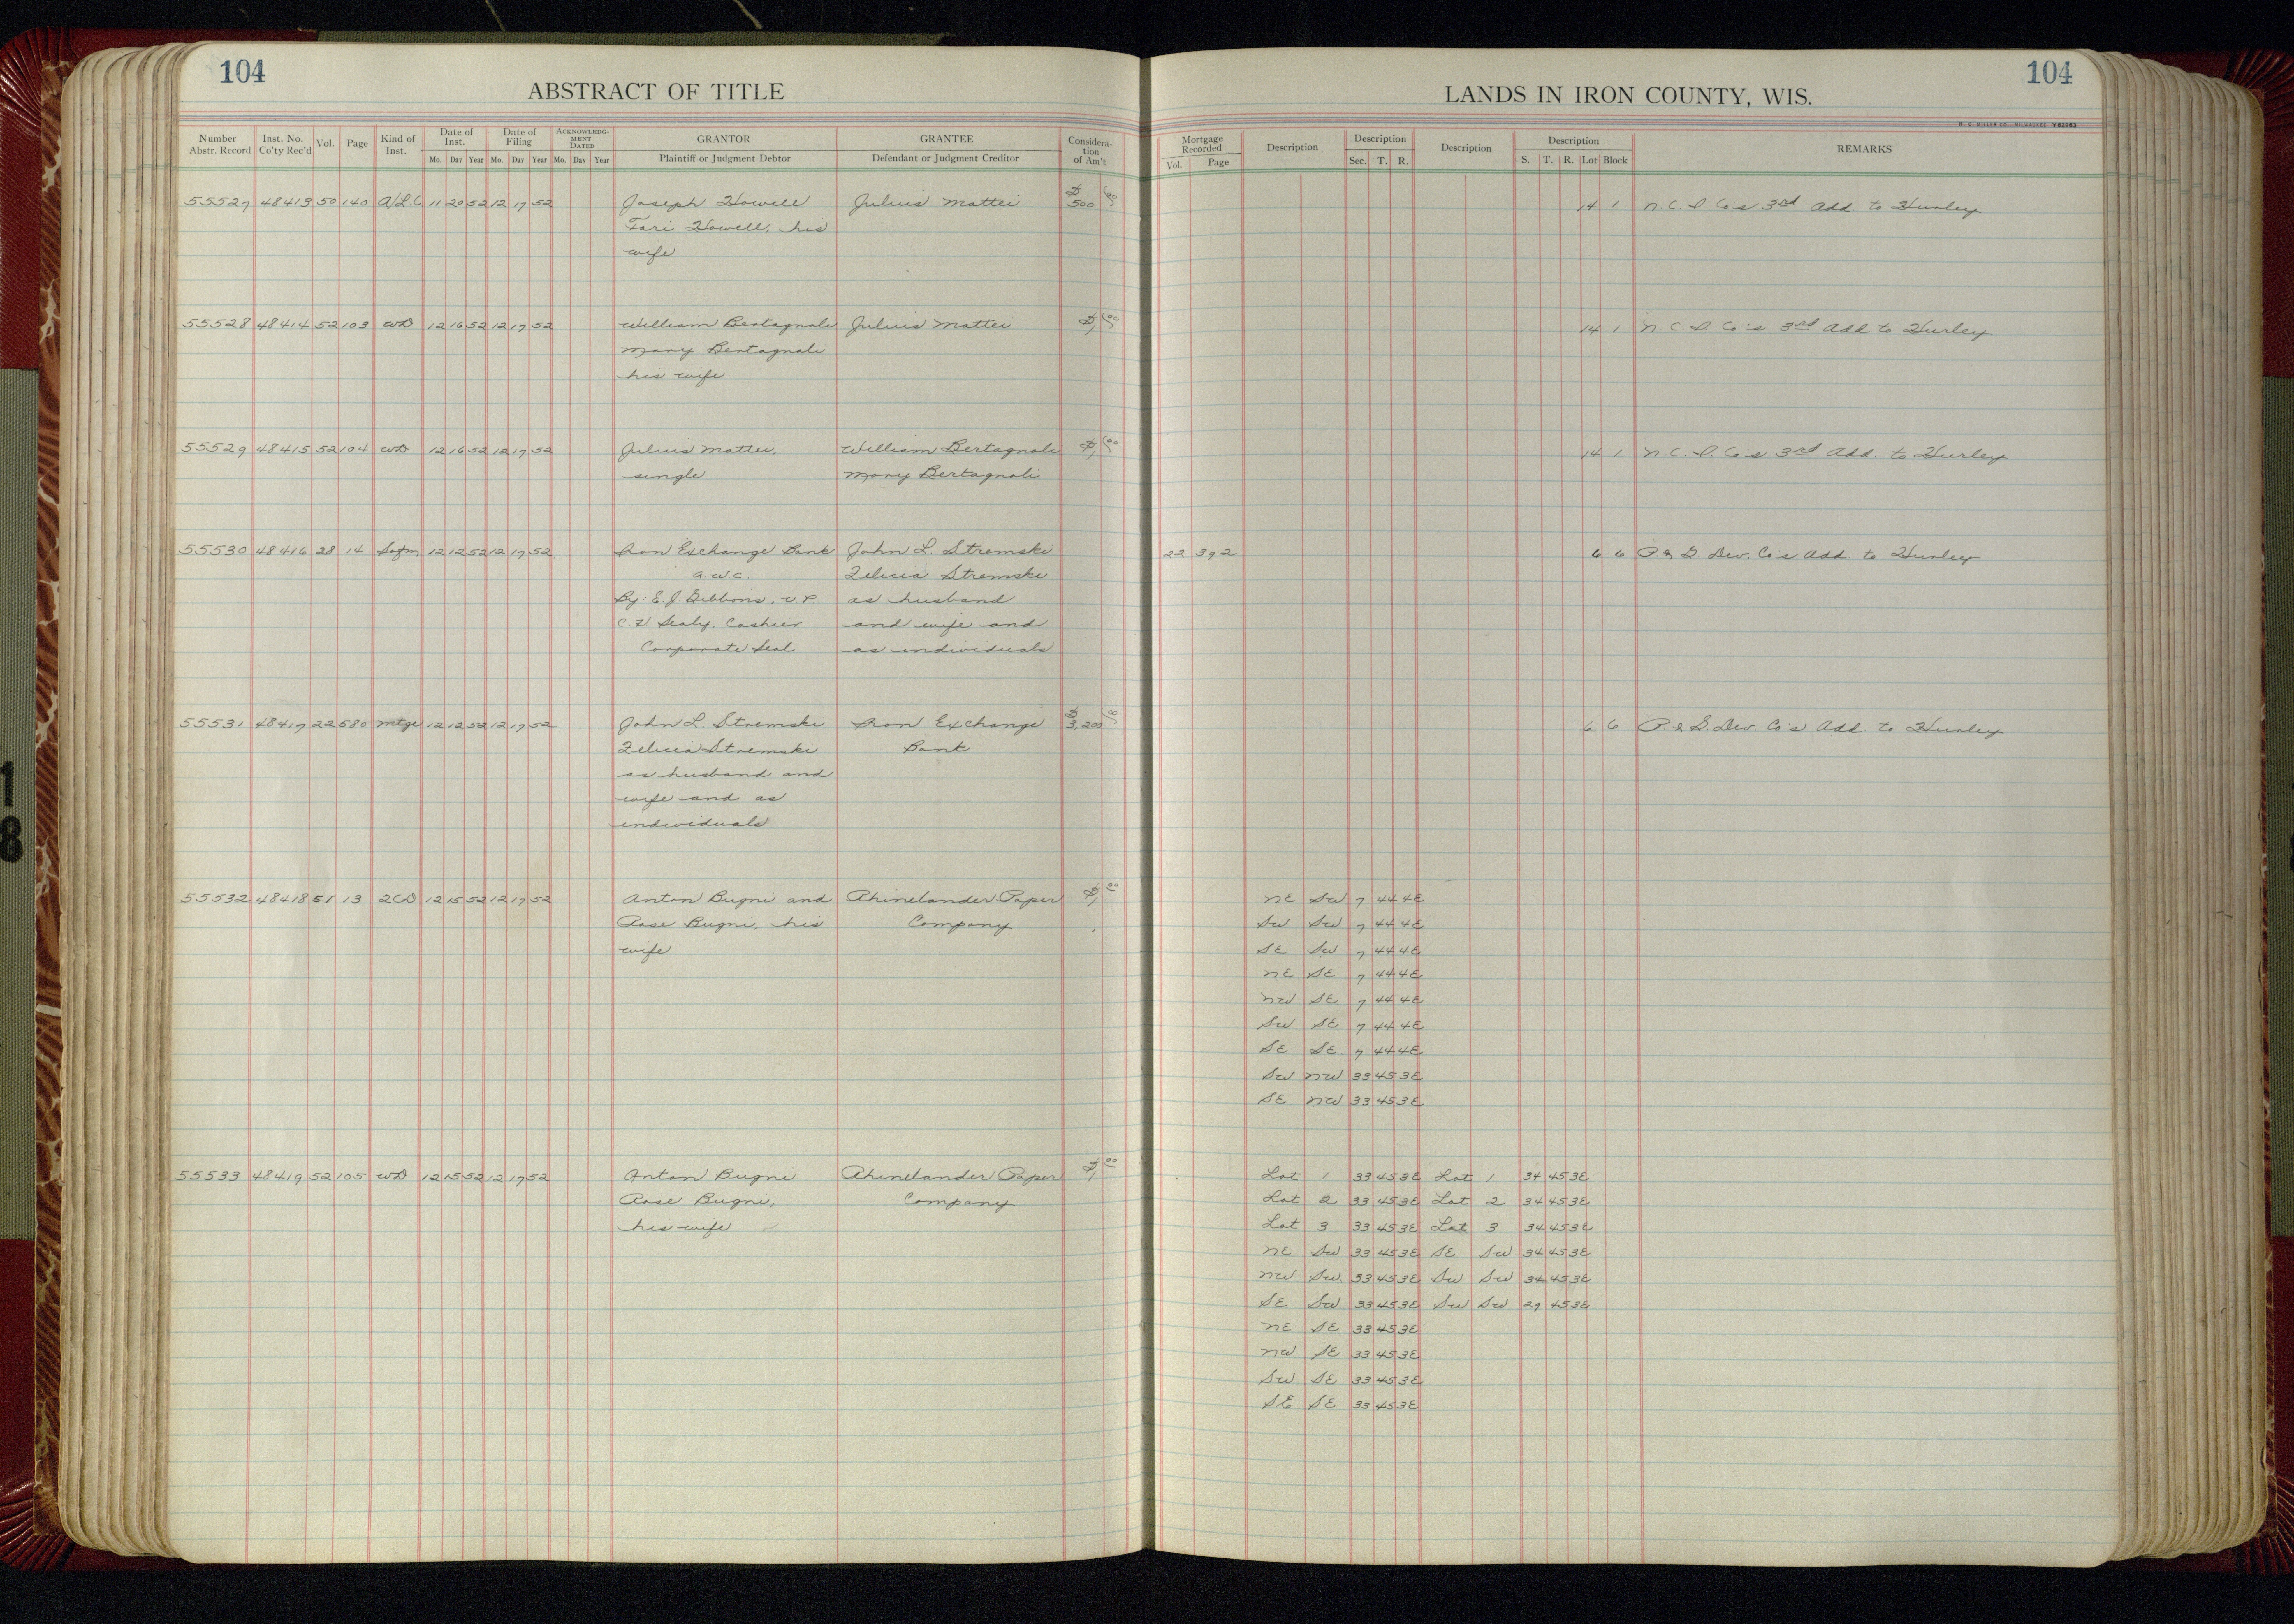 104
ABSTRACT OF TITLE
LANDS IN IRON COUNTY, WIS.
104
H. C. MILLER CO., MILWAUKEE V82963
Number Abstr. Record Inst. No. Co'ty Rec'd Vol. Page Kind of Inst. Date of Inst. Mo. Day Year Date of Filing Mo. Day Year ACKNOWLEDGMENT DATED Mo. Day Year GRANTOR Plaintiff or Judgment Debtor GRANTEE Defendant or Judgment Creditor Consideration of Am't
Mortgage Recorded Vol. Page Description Description Sec. T. R. Description Description S. T. R. Lot Block REMARKS
55527 48413 50 140 A/L.C. 11 20 52 12 17 52 Joseph Howell Julius Mattei $500 00 14 1 N. C. I. Co's 3rd Add. to Hurley
Howell, his
wife
55528 48414 52 103 WD 12 16 52 12 17 52 William Bertagnoli Julius Mattei $1 00 14 1 N. C. I. Co's 3rd Add to Hurley
Mary Bertagnoli
his wife
55529 48415 52 104 WD 12 16 52 12 17 52 Julius Mattei, William Bertagnoli $1 00 14 1 N. C. I. Co's 3rd Add. to Hurley
single Mary Bertagnoli
55530 48416 28 14 12 12 52 12 17 52 Iron Exchange Bank John L. Stremski 22 392 6 6 P. & G. Dev. Co's Add. to Hurley
a.w.c. Zelicia Stremski
By: E. J. Gibbons, V P. as husband
Sealy, Cashier and wife and
Corporate Seal as individuals
55531 48417 22 580 Mtge 12 12 52 12 17 52 John L. Stremski Iron Exchange $3,200 00 6 6 P. & G. Dev. Co's Add. to Hurley
Zelicia Stremski Bank
as husband and
wife and as
individuals
55532 48418 51 13 2CD 12 15 52 12 17 52 Anton Bugni and Rhinelander Paper $1 00 NE SW 7 44 4E
Rose Bugni, his Company SW SW 7 44 4E
wife SE SW 7 44 4E
NE SE 7 44 4E
NW SE 7 44 4E
SW SE 7 44 4E
SE SE 7 44 4E
SW NW 33 45 3E
SE NW 33 45 3E
55533 48419 52 105 WD 12 15 52 12 17 52 Anton Bugni Rhinelander Paper $1 00 Lot 1 33 45 3E Lot 1 34 45 3E
Rose Bugni, Company Lot 2 33 45 3E Lot 2 34 45 3E
his wife Lot 3 33 45 3E Lot 3 34 45 3E
NE SW 33 45 3E SE SW 34 45 3E
NW SW 33 45 3E SW SW 34 45 3E
SE SW 33 45 3E SW SW 29 45 3E
NE SE 33 45 3E
NW SE 33 45 3E
SW SE 33 45 3E
SE SE 33 45 3E
1
8